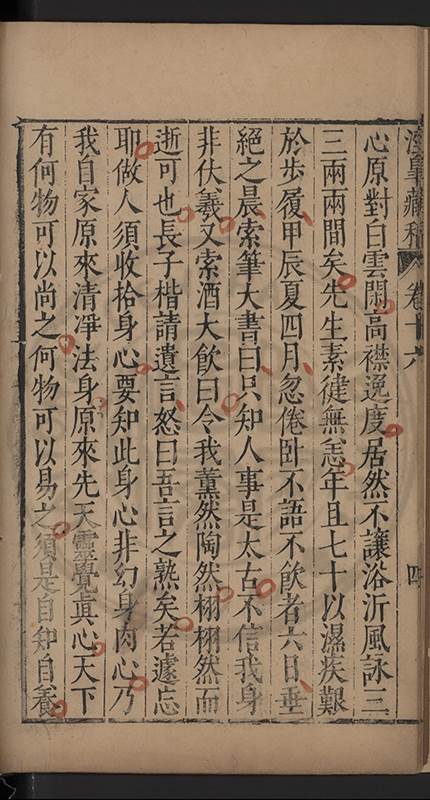 涇皐藏稿 卷十六 四
心原對白雲閒高襟逸度居然不讓浴沂風詠三
三兩兩間矣先生素徤無恙年且七十以濕疾艱
於步履甲辰夏四月忽倦卧不語不飲者六日垂
絕之晨索筆大書曰只知人事是太古不信我身
非伏羲又索酒大飲曰令我薰然陶然栩栩然而
逝可也長子楷請遺言怒曰吾言之熟矣若遽忘
耶做人須收拾身心要知此身心非幻身肉心乃
我自家原來清凈法身原來先天靈覺真心天下
有何物可以尚之何物可以易之須是自知自養